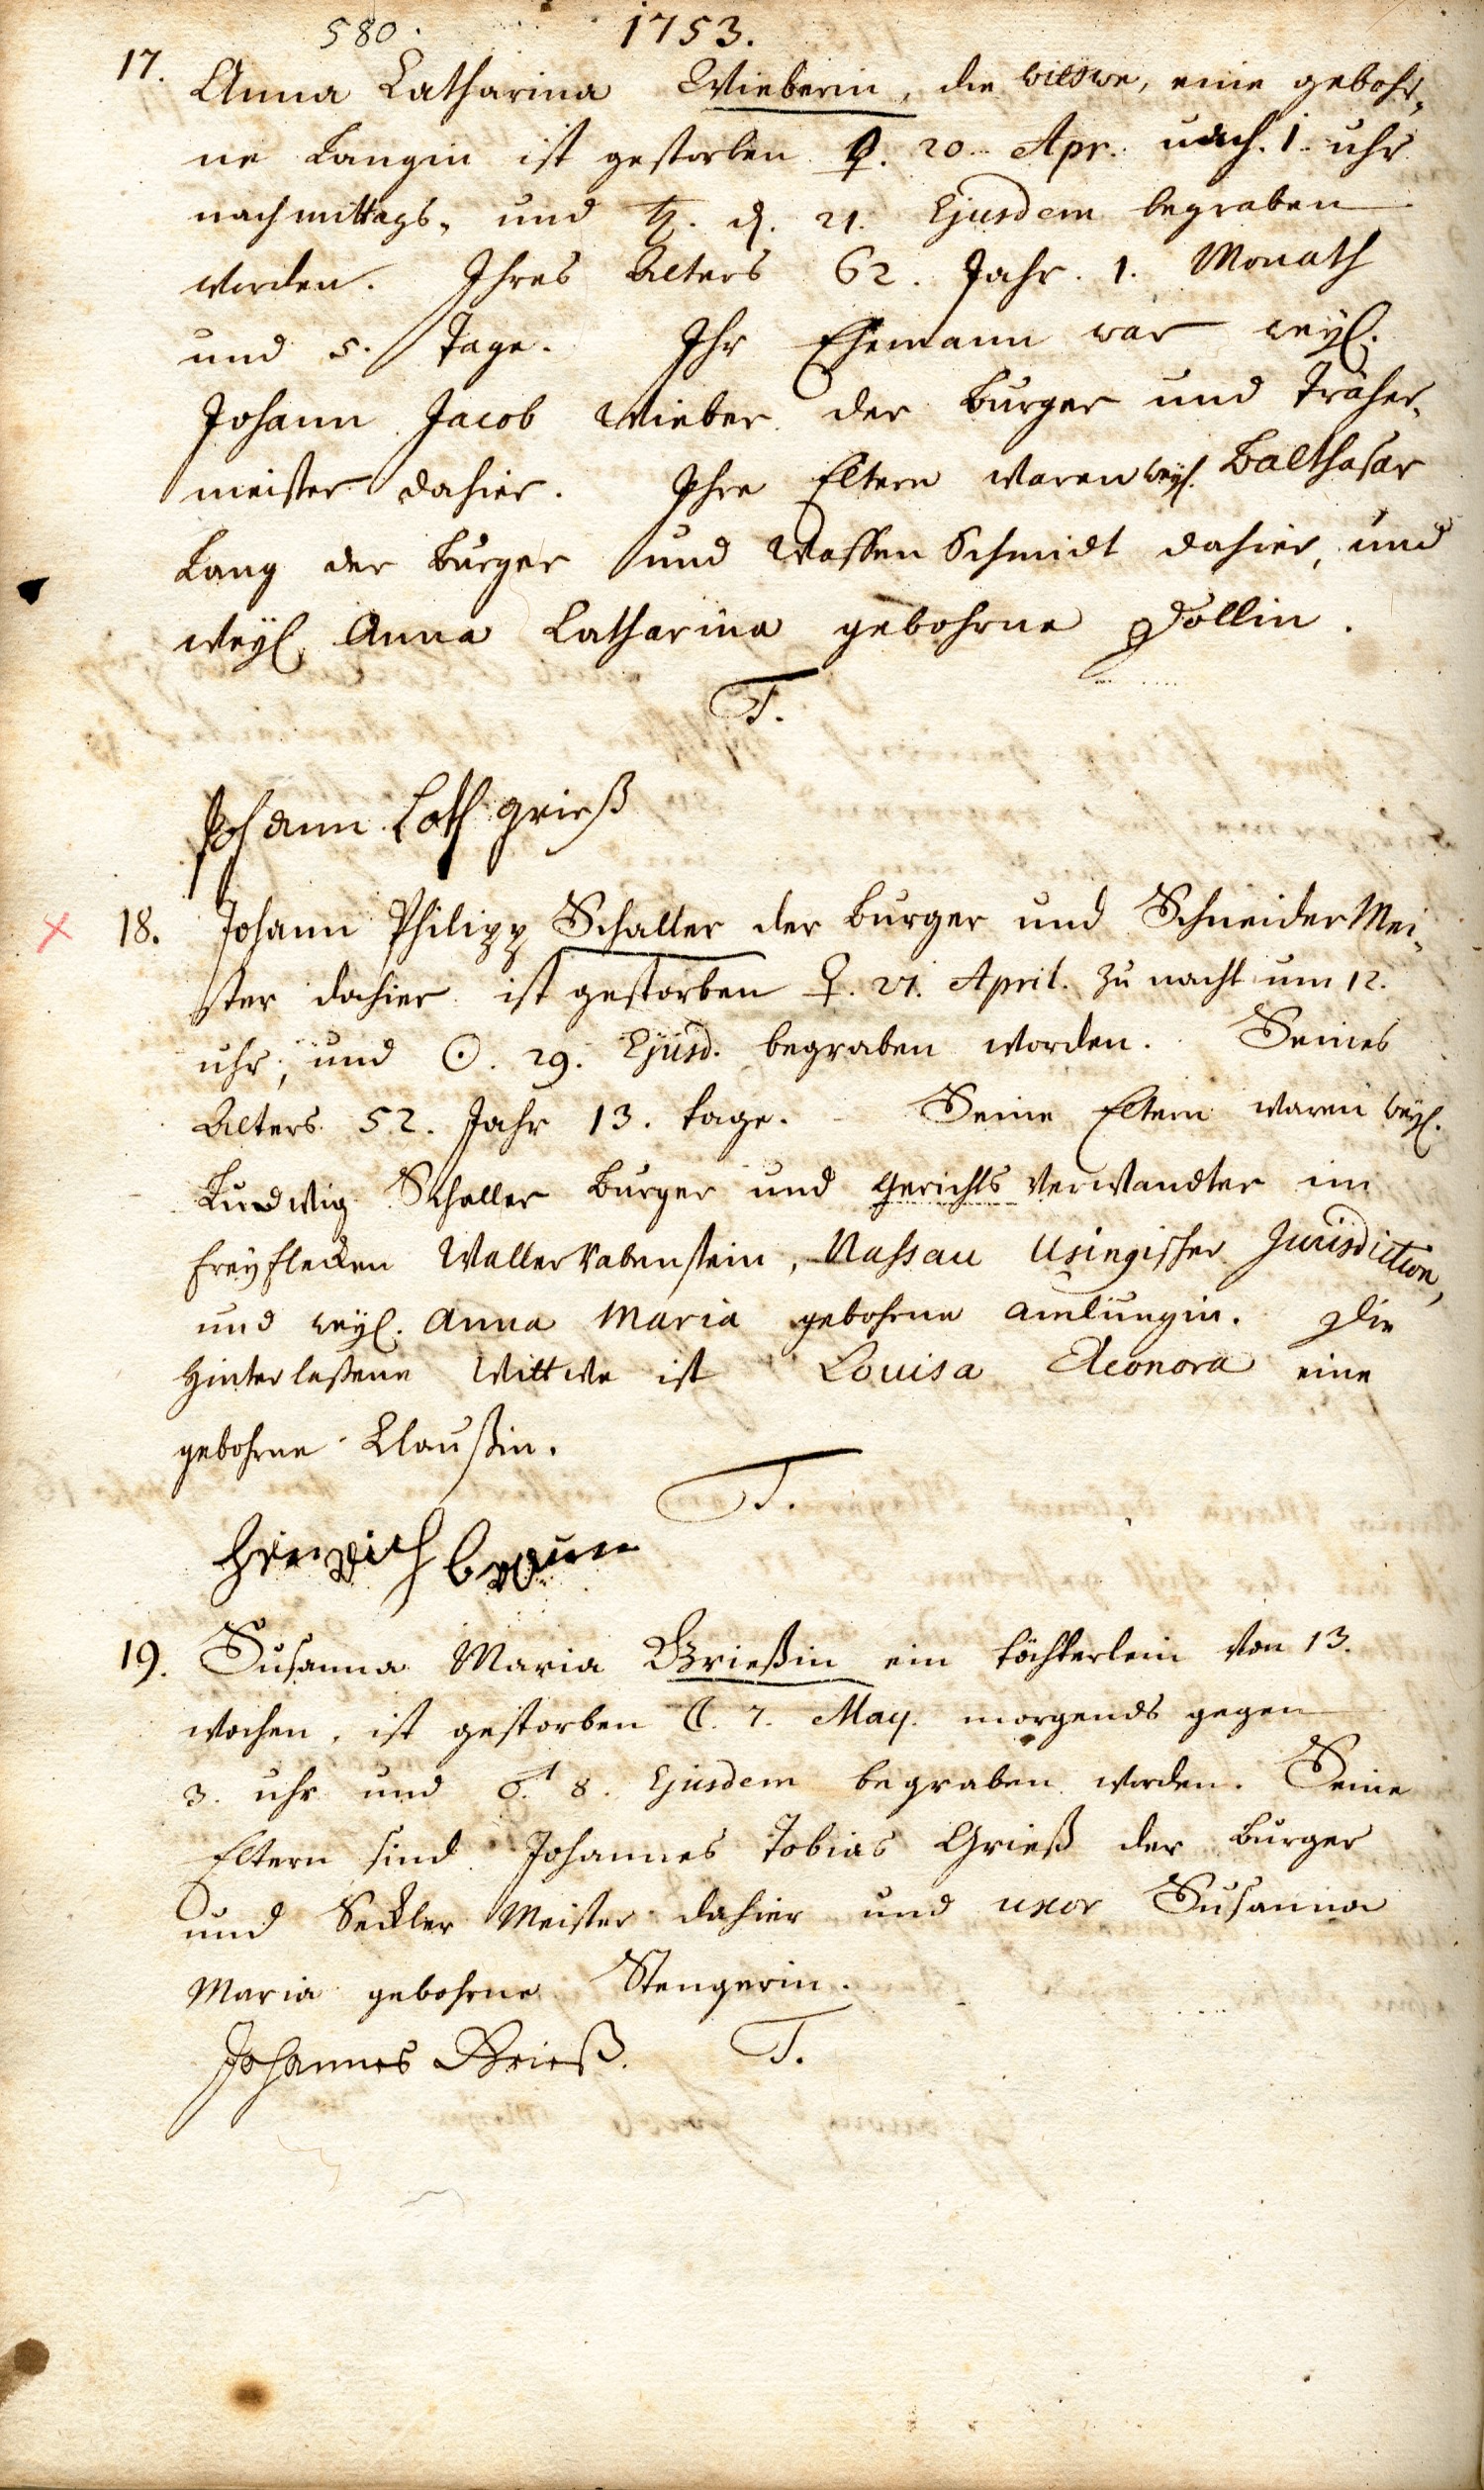 580. 1753.
17. Anna Catharina Wieberin, die wittwe, eine gebohr-
ne Langin ist gestorben ♀. 20. Apr. nach. 1. uhr
nachmittags, und ♄. d. 21. Ejusdem begraben
worden. Ihres Alters 62. Jahr. 1. Monath
und 5. Tage. Ihr Ehemann war weyl.
Johann Jacob Wieber der Burger und Träher-
meister dahier. Ihre Eltern waren weyl. Balthasar
Lang der Burger und Waffen Schmidt dahier, und
weyl. Anna Catharina gebohrne Dollin.
T.
Johann Loth grieß
18. Johann Philipp Schaller der Burger und Schneider Mei-
ster dahier ist gestorben ♀. 27. April. zu nacht um 12.
uhr, und ☉. 29. Ejusd. begraben worden. Seines
Alters 52. Jahr 13. tage. Seine Eltern waren weyl.
Ludwig Schaller Burger und Gerichts Verwandter im
freyflecken Wallerrabenstein, Nassau Usingischer Jurisdiction,
und weyl. Anna Maria gebohrne amlungin. Die
hinterlaßene Wittwe ist Louisa Eleonora eine
gebohrne Claußin.
T.
Henrich braun
19. Susanna Maria Grießin ein töchterlein von 13.
wochen, ist gestorben ☾. 7. May. morgends gegen
3. uhr und ♂. 8. Ejusdem begraben worden. Seine
Eltern sind Johannes Tobias Grieß der Burger
und Seckler Meister dahier und uxor Susanna
Maria gebohrne Stengerin.
Johannes Grieß. T.